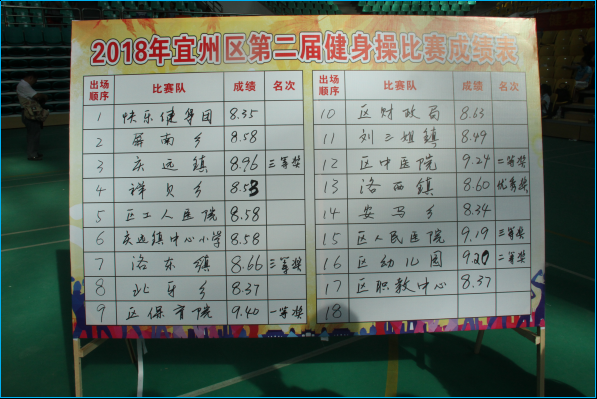 2018年宜州区第二届健身操比赛成绩表
出场顺序 比赛队 成绩 名次
1 快乐健身团 8.35
2 屏南乡 8.58
3 庆远镇 8.96 三等奖
4 祥贝乡 8.53
5 区工人医院 8.58
6 庆远镇中心小学 8.58
7 洛东镇 8.66 三等奖
8 北牙乡 8.37
9 区保育院 9.40 一等奖
出场顺序 比赛队 成绩 名次
10 区财政局 8.63
11 刘三姐镇 8.49
12 区中医院 9.24 二等奖
13 洛西镇 8.60 优秀奖
14 安马乡 8.34
15 区人民医院 9.19 三等奖
16 区幼儿园 9.20 二等奖
17 区职教中心 8.37
18